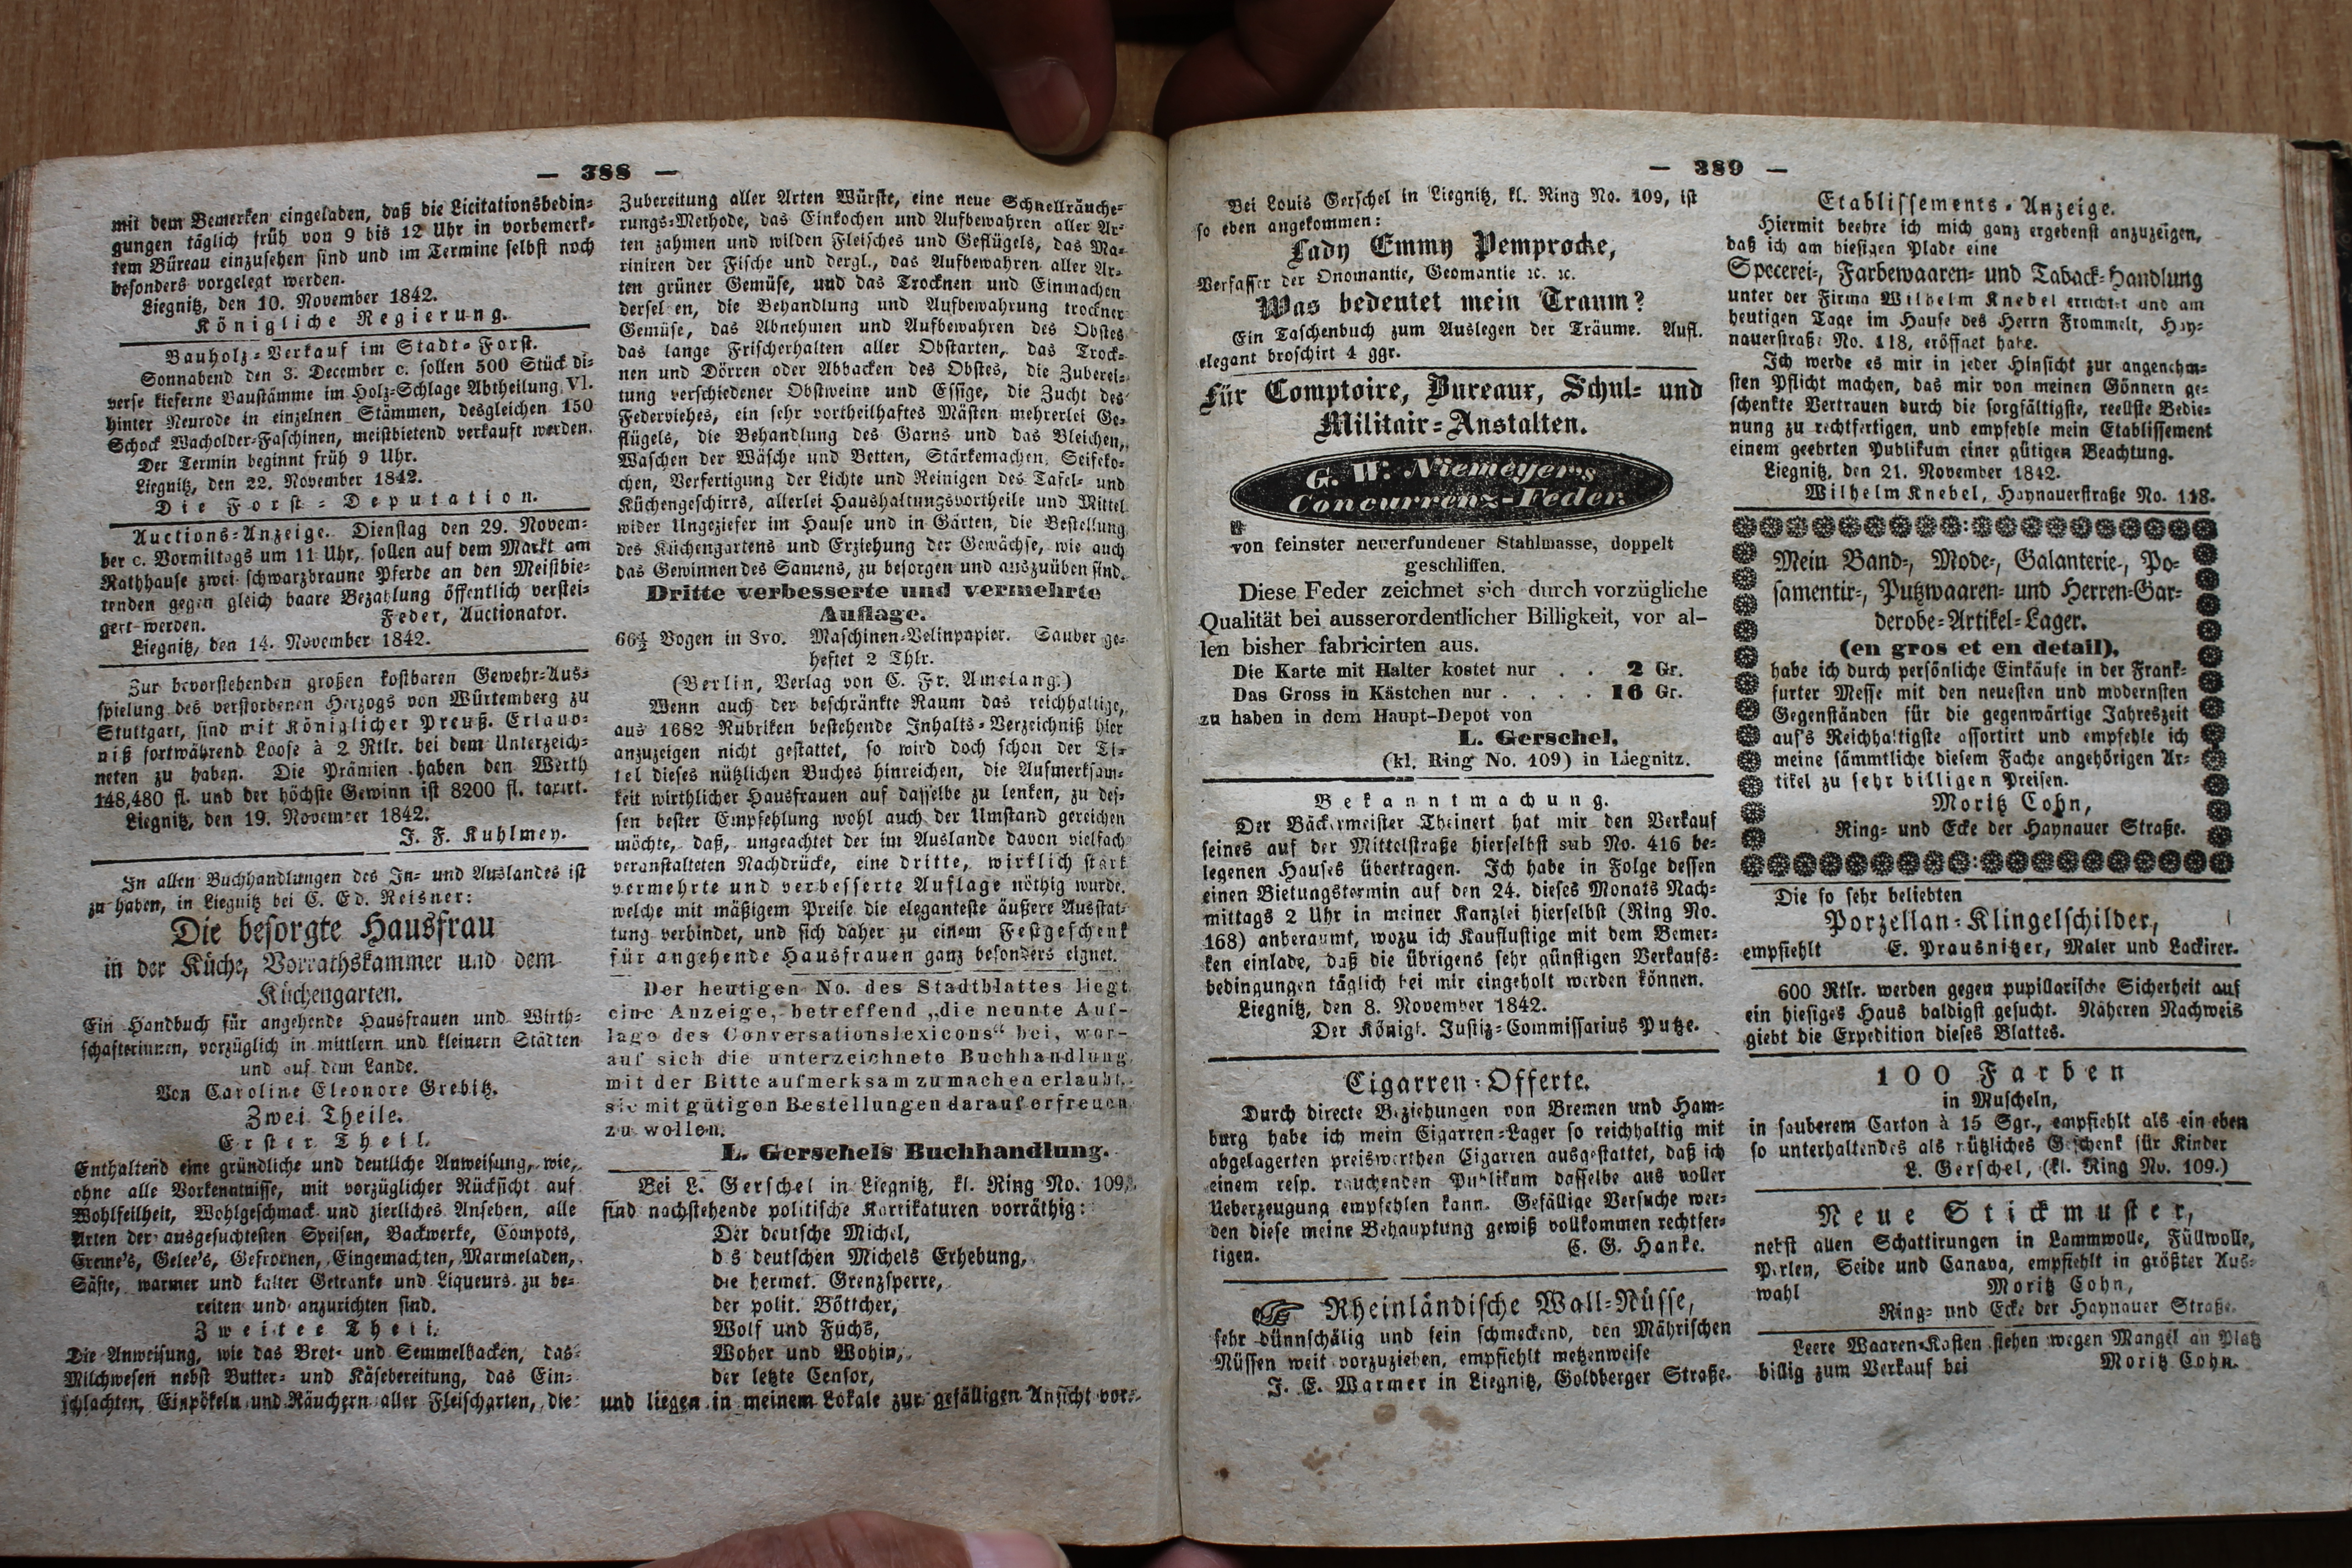 — 388 —
mit dem Bemerken eingeladen, daß die Licitationsbedin-
gungen täglich früh von 9 bis 12 Uhr in vorbemerk-
tem Büreau einzusehen sind und im Termine selbst noch
besonders vorgelegt werden.
Liegnitz, den 10. November 1842.
Königliche Regierung.
Bauholz-Verkauf im Stadt-Forst.
Sonnabend den 3. December c. sollen 500 Stück di-
verse kieferne Baustämme im Holz-Schlage Abtheilung VI.
hinter Neurode in einzelnen Stämmen, desgleichen 150
Schock Wacholder-Faschinen, meistbietend verkauft werden.
Der Termin beginnt früh 9 Uhr.
Liegnitz, den 22. November 1842.
Die Forst-Deputation.
Auctions-Anzeige. Dienstag den 29. Novem-
ber c. Vormittags um 11 Uhr, sollen auf dem Markt am
Rathhause zwei schwarzbraune Pferde an den Meistbie-
tenden gegen gleich baare Bezahlung öffentlich verstei-
gert werden. Feder, Auctionator.
Liegnitz, den 14. November 1842.
Zur bevorstehenden großen kostbaren Gewehr-Aus-
spielung des verstorbenen Herzogs von Würtemberg zu
Stuttgart, sind mit Königlicher Preuß. Erlaub-
niß fortwährend Loose à 2 Rtlr. bei dem Unterzeich-
neten zu haben. Die Prämien haben den Werth
148,480 fl. und der höchste Gewinn ist 8200 fl. taxirt.
Liegnitz, den 19. November 1842.
J. F. Kuhlmey.
In allen Buchhandlungen des In- und Auslandes ist
zu haben, in Liegnitz bei C. Ed. Reisner:
Die besorgte Hausfrau
in der Küche, Vorrathskammer und dem
Küchengarten.
Ein Handbuch für angehende Hausfrauen und Wirth-
schafterinnen, vorzüglich in mittlern und kleinern Städten
und auf dem Lande.
Von Caroline Eleonore Grebitz.
Zwei Theile.
Erster Theil.
Enthaltend eine gründliche und deutliche Anweisung, wie,
ohne alle Vorkenntnisse, mit vorzüglicher Rücksicht auf
Wohlfeilheit, Wohlgeschmack und zierliches Ansehen, alle
Arten der ausgesuchtesten Speisen, Backwerke, Compots,
Creme's, Gelee's, Gefrornen, Eingemachten, Marmeladen,
Säfte, warmer und kalter Getränke und Liqueurs zu be-
reiten und anzurichten sind.
Zweiter Theil.
Die Anweisung, wie das Brot- und Semmelbacken, das
Milchwesen nebst Butter- und Käsebereitung, das Ein-
schlachten, Einpökeln und Räuchern aller Fleischarten, die
Zubereitung aller Arten Würste, eine neue Schnellräuche-
rungs-Methode, das Einkochen und Aufbewahren aller Ar-
ten zahmen und wilden Fleisches und Geflügels, das Ma-
riniren der Fische und dergl., das Aufbewahren aller Ar-
ten grüner Gemüse, und das Trocknen und Einmachen
derselben, die Behandlung und Aufbewahrung trockner
Gemüse, das Abnehmen und Aufbewahren des Obstes
das lange Frischerhalten aller Obstarten, das Trock-
nen und Dörren oder Abbacken des Obstes, die Zuberei-
tung verschiedener Obstweine und Essige, die Zucht des
Federviehes, ein sehr vortheilhaftes Mästen mehrerlei Ge-
flügels, die Behandlung des Garns und das Bleichen,
Waschen der Wäsche und Betten, Stärkemachen, Seifeko-
chen, Verfertigung der Lichte und Reinigen des Tafel- und
Küchengeschirrs, allerlei Haushaltungsvortheile und Mittel
wider Ungeziefer im Hause und in Gärten, die Bestellung
des Küchengartens und Erziehung der Gewächse, wie auch
das Gewinnen des Samens, zu besorgen und auszuüben sind.
Dritte verbesserte und vermehrte
Auflage.
66½ Bogen in 8vo. Maschinen-Velinpapier. Sauber ge-
heftet 2 Thlr.
(Berlin, Verlag von C. Fr. Amelang.)
Wenn auch der beschränkte Raum das reichhaltige,
aus 1682 Rubriken bestehende Inhalts-Verzeichniß hier
anzuzeigen nicht gestattet, so wird doch schon der Ti-
tel dieses nützlichen Buches hinreichen, die Aufmerksam-
keit wirthlicher Hausfrauen auf dasselbe zu lenken, zu des-
sen bester Empfehlung wohl auch der Umstand gereichen
möchte, daß, ungeachtet der im Auslande davon vielfach
veranstalteten Nachdrücke, eine dritte, wirklich stark
vermehrte und verbesserte Auflage nöthig wurde.
welche mit mäßigem Preise die eleganteste äußere Ausstat-
tung verbindet, und sich daher zu einem Festgeschenk
für angehende Hausfrauen ganz besonders eignet.
Der heutigen No. des Stadtblattes liegt
eine Anzeige, betreffend „die neunte Auf-
lage des Conversationslexicons“ bei, wor-
auf sich die unterzeichnete Buchhandlung
mit der Bitte aufmerksam zu machen erlaubt,
sie mit gütigen Bestellungen darauf erfreuen
zu wollen.
L. Gerschels Buchhandlung.
Bei L. Gerschel in Liegnitz, kl. Ring No. 109,
sind nachstehende politische Karrikaturen vorräthig:
Der deutsche Michel,
d s deutschen Michels Erhebung,
die hermet. Grenzsperre,
der polit. Böttcher,
Wolf und Fuchs,
Woher und Wohin,
der letzte Censor,
und liegen in meinem Lokale zur gefälligen Ansicht vor.
— 389 —
Bei Louis Gerschel in Liegnitz, kl. Ring No. 109, ist
so eben angekommen:
Lady Emmy Pemprocke,
Verfasser der Onomantie, Geomantie ꝛc. ꝛc.
Was bedeutet mein Traum?
Ein Taschenbuch zum Auslegen der Träume. Aufl.
elegant broschirt 4 ggr.
Für Comptoire, Bureaux, Schul- und
Militair-Anstalten.
G. W. Niemeyer's
Concurrenz-Feder.
von feinster neuerfundener Stahlmasse, doppelt
geschliffen.
Diese Feder zeichnet sich durch vorzügliche
Qualität bei ausserordentlicher Billigkeit, vor al-
len bisher fabricirten aus.
Die Karte mit Halter kostet nur . . 2 Gr.
Das Gross in Kästchen nur . . . . 16 Gr.
zu haben in dem Haupt-Depot von
L. Gerschel,
(kl. Ring No. 109) in Liegnitz.
Bekanntmachung.
Der Bäckermeister Theinert hat mir den Verkauf
seines auf der Mittelstraße hierselbst sub No. 416 be-
legenen Hauses übertragen. Ich habe in Folge dessen
einen Bietungstermin auf den 24. dieses Monats Nach-
mittags 2 Uhr in meiner Kanzlei hierselbst (Ring No.
168) anberaumt, wozu ich Kauflustige mit dem Bemer-
ken einlade, daß die übrigens sehr günstigen Verkaufs-
bedingungen täglich bei mir eingeholt werden können.
Liegnitz, den 8. November 1842.
Der Königl. Justiz-Commissarius Putze.
Cigarren-Offerte.
Durch directe Beziehungen von Bremen und Ham-
burg habe ich mein Cigarren-Lager so reichhaltig mit
abgelagerten preiswerthen Cigarren ausgestattet, daß ich
einem resp. rauchenden Publikum dasselbe aus voller
Ueberzeugung empfehlen kann. Gefällige Versuche wer-
den diese meine Behauptung gewiß vollkommen rechtfer-
tigen. C. G. Hanke.
Rheinländische Wall-Nüsse,
sehr dünnschälig und fein schmeckend, den Mährischen
Nüssen weit vorzuziehen, empfiehlt metzenweise
J. E. Warmer in Liegnitz, Goldberger Straße.
Etablissements-Anzeige.
Hiermit beehre ich mich ganz ergebenst anzuzeigen,
daß ich am hiesigen Platze eine
Specerei-, Farbewaaren- und Taback-Handlung
unter der Firma Wilhelm Knebel errichtet und am
heutigen Tage im Hause des Herrn Frommelt, Hay-
nauerstraße No. 118, eröffnet habe.
Ich werde es mir in jeder Hinsicht zur angenehm-
sten Pflicht machen, das mir von meinen Gönnern ge-
schenkte Vertrauen durch die sorgfältigste, reellste Bedie-
nung zu rechtfertigen, und empfehle mein Etablissement
einem geehrten Publikum einer gütigen Beachtung.
Liegnitz, den 21. November 1842.
Wilhelm Knebel, Haynauerstraße No. 118.
Mein Band-, Mode-, Galanterie-, Po-
samentir-, Putzwaaren- und Herren-Gar-
derobe-Artikel-Lager.
(en gros et en detail),
habe ich durch persönliche Einkäufe in der Frank-
furter Messe mit den neuesten und modernsten
Gegenständen für die gegenwärtige Jahreszeit
auf's Reichhaltigste assortirt und empfehle ich
meine sämmtliche diesem Fache angehörigen Ar-
tikel zu sehr billigen Preisen.
Moritz Cohn,
Ring- und Ecke der Haynauer Straße.
Die so sehr beliebten
Porzellan-Klingelschilder,
empfiehlt E. Prausnitzer, Maler und Lackirer.
600 Rtlr. werden gegen pupillarische Sicherheit auf
ein hiesiges Haus baldigst gesucht. Näheren Nachweis
giebt die Expedition dieses Blattes.
100 Farben
in Muscheln,
in sauberem Carton à 15 Sgr., empfiehlt als ein eben
so unterhaltendes als nützliches Geschenk für Kinder
L. Gerschel, (kl. Ring No. 109.)
Neue Stickmuster,
nebst allen Schattirungen in Lammwolle, Füllwolle,
Perlen, Seide und Canava, empfiehlt in größter Aus-
wahl Moritz Cohn,
Ring- und Ecke der Haynauer Straße.
Leere Waaren-Kasten stehen wegen Mangel an Platz
billig zum Verkauf bei Moritz Cohn.